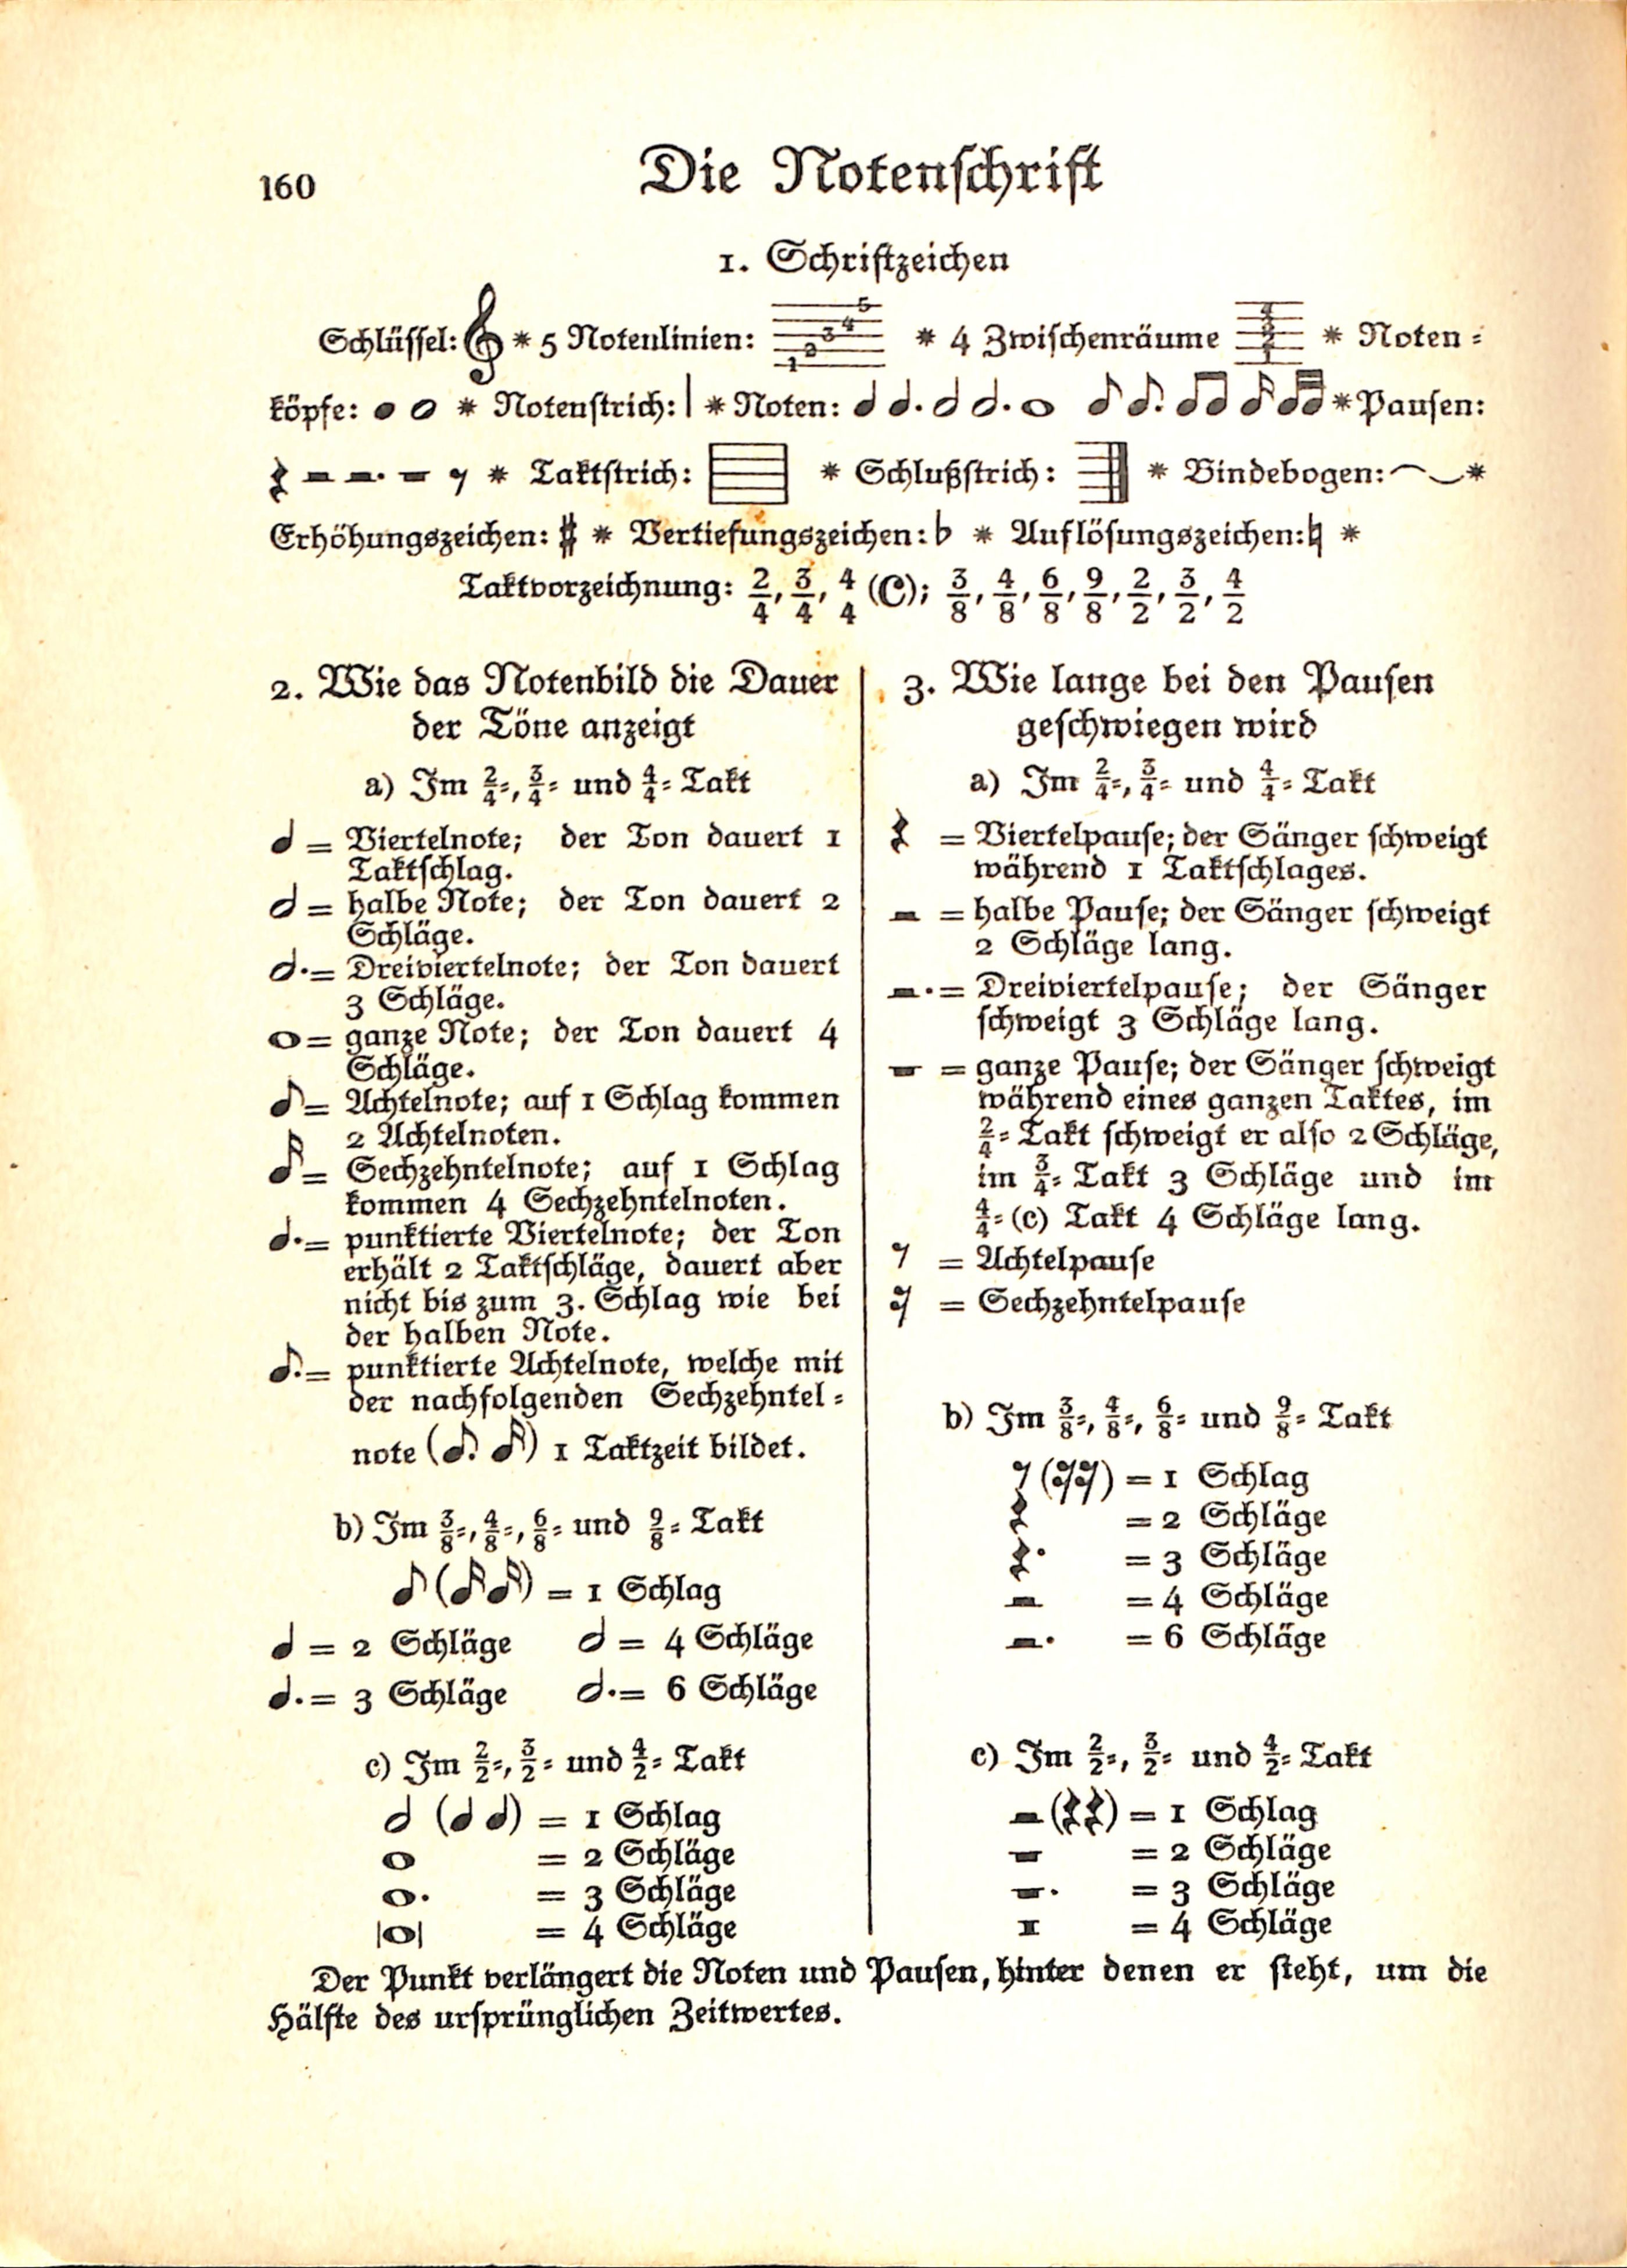 160
Die Notenschrift
1. Schriftzeichen
Schlüssel: 𝄞 * 5 Notenlinien: 1 2 3 4 5 * 4 Zwischenräume 1 2 3 4 * Noten=
köpfe: * Notenstrich: | * Noten: * Pausen:
* Taktstrich: * Schlußstrich: * Bindebogen: *
Erhöhungszeichen: ♯ * Vertiefungszeichen: ♭ * Auflösungszeichen: ♮ *
Taktvorzeichnung: 2/4, 3/4, 4/4 (C); 3/8, 4/8, 6/8, 9/8, 2/2, 3/2, 4/2
2. Wie das Notenbild die Dauer
der Töne anzeigt
a) Im 2/4=, 3/4= und 4/4= Takt
♩ = Viertelnote; der Ton dauert 1
Taktschlag.
𝅗𝅥 = halbe Note; der Ton dauert 2
Schläge.
𝅗𝅥. = Dreiviertelnote; der Ton dauert
3 Schläge.
𝅝 = ganze Note; der Ton dauert 4
Schläge.
♪ = Achtelnote; auf 1 Schlag kommen
2 Achtelnoten.
𝅘𝅥𝅯 = Sechzehntelnote; auf 1 Schlag
kommen 4 Sechzehntelnoten.
♩. = punktierte Viertelnote; der Ton
erhält 2 Taktschläge, dauert aber
nicht bis zum 3. Schlag wie bei
der halben Note.
♪. = punktierte Achtelnote, welche mit
der nachfolgenden Sechzehntel=
note (♪. 𝅘𝅥𝅯) 1 Taktzeit bildet.
b) Im 3/8=, 4/8=, 6/8= und 9/8= Takt
♪ (𝅘𝅥𝅯 𝅘𝅥𝅯) = 1 Schlag
♩ = 2 Schläge 𝅗𝅥 = 4 Schläge
♩. = 3 Schläge 𝅗𝅥. = 6 Schläge
c) Im 2/2=, 3/2= und 4/2= Takt
𝅗𝅥 (♩ ♩) = 1 Schlag
𝅝 = 2 Schläge
𝅝. = 3 Schläge
|𝅝| = 4 Schläge
3. Wie lange bei den Pausen
geschwiegen wird
a) Im 2/4=, 3/4= und 4/4= Takt
𝄽 = Viertelpause; der Sänger schweigt
während 1 Taktschlages.
𝄼 = halbe Pause; der Sänger schweigt
2 Schläge lang.
𝄼. = Dreiviertelpause; der Sänger
schweigt 3 Schläge lang.
𝄻 = ganze Pause; der Sänger schweigt
während eines ganzen Taktes, im
2/4= Takt schweigt er also 2 Schläge,
im 3/4= Takt 3 Schläge und im
4/4= (c) Takt 4 Schläge lang.
𝄾 = Achtelpause
𝄿 = Sechzehntelpause
b) Im 3/8=, 4/8=, 6/8= und 9/8= Takt
𝄾 (𝄿𝄿) = 1 Schlag
𝄽 = 2 Schläge
𝄽. = 3 Schläge
𝄼 = 4 Schläge
𝄼. = 6 Schläge
c) Im 2/2=, 3/2= und 4/2= Takt
𝄼 (𝄽𝄽) = 1 Schlag
𝄻 = 2 Schläge
𝄻. = 3 Schläge
𝄺 = 4 Schläge
Der Punkt verlängert die Noten und Pausen, hinter denen er steht, um die
Hälfte des ursprünglichen Zeitwertes.